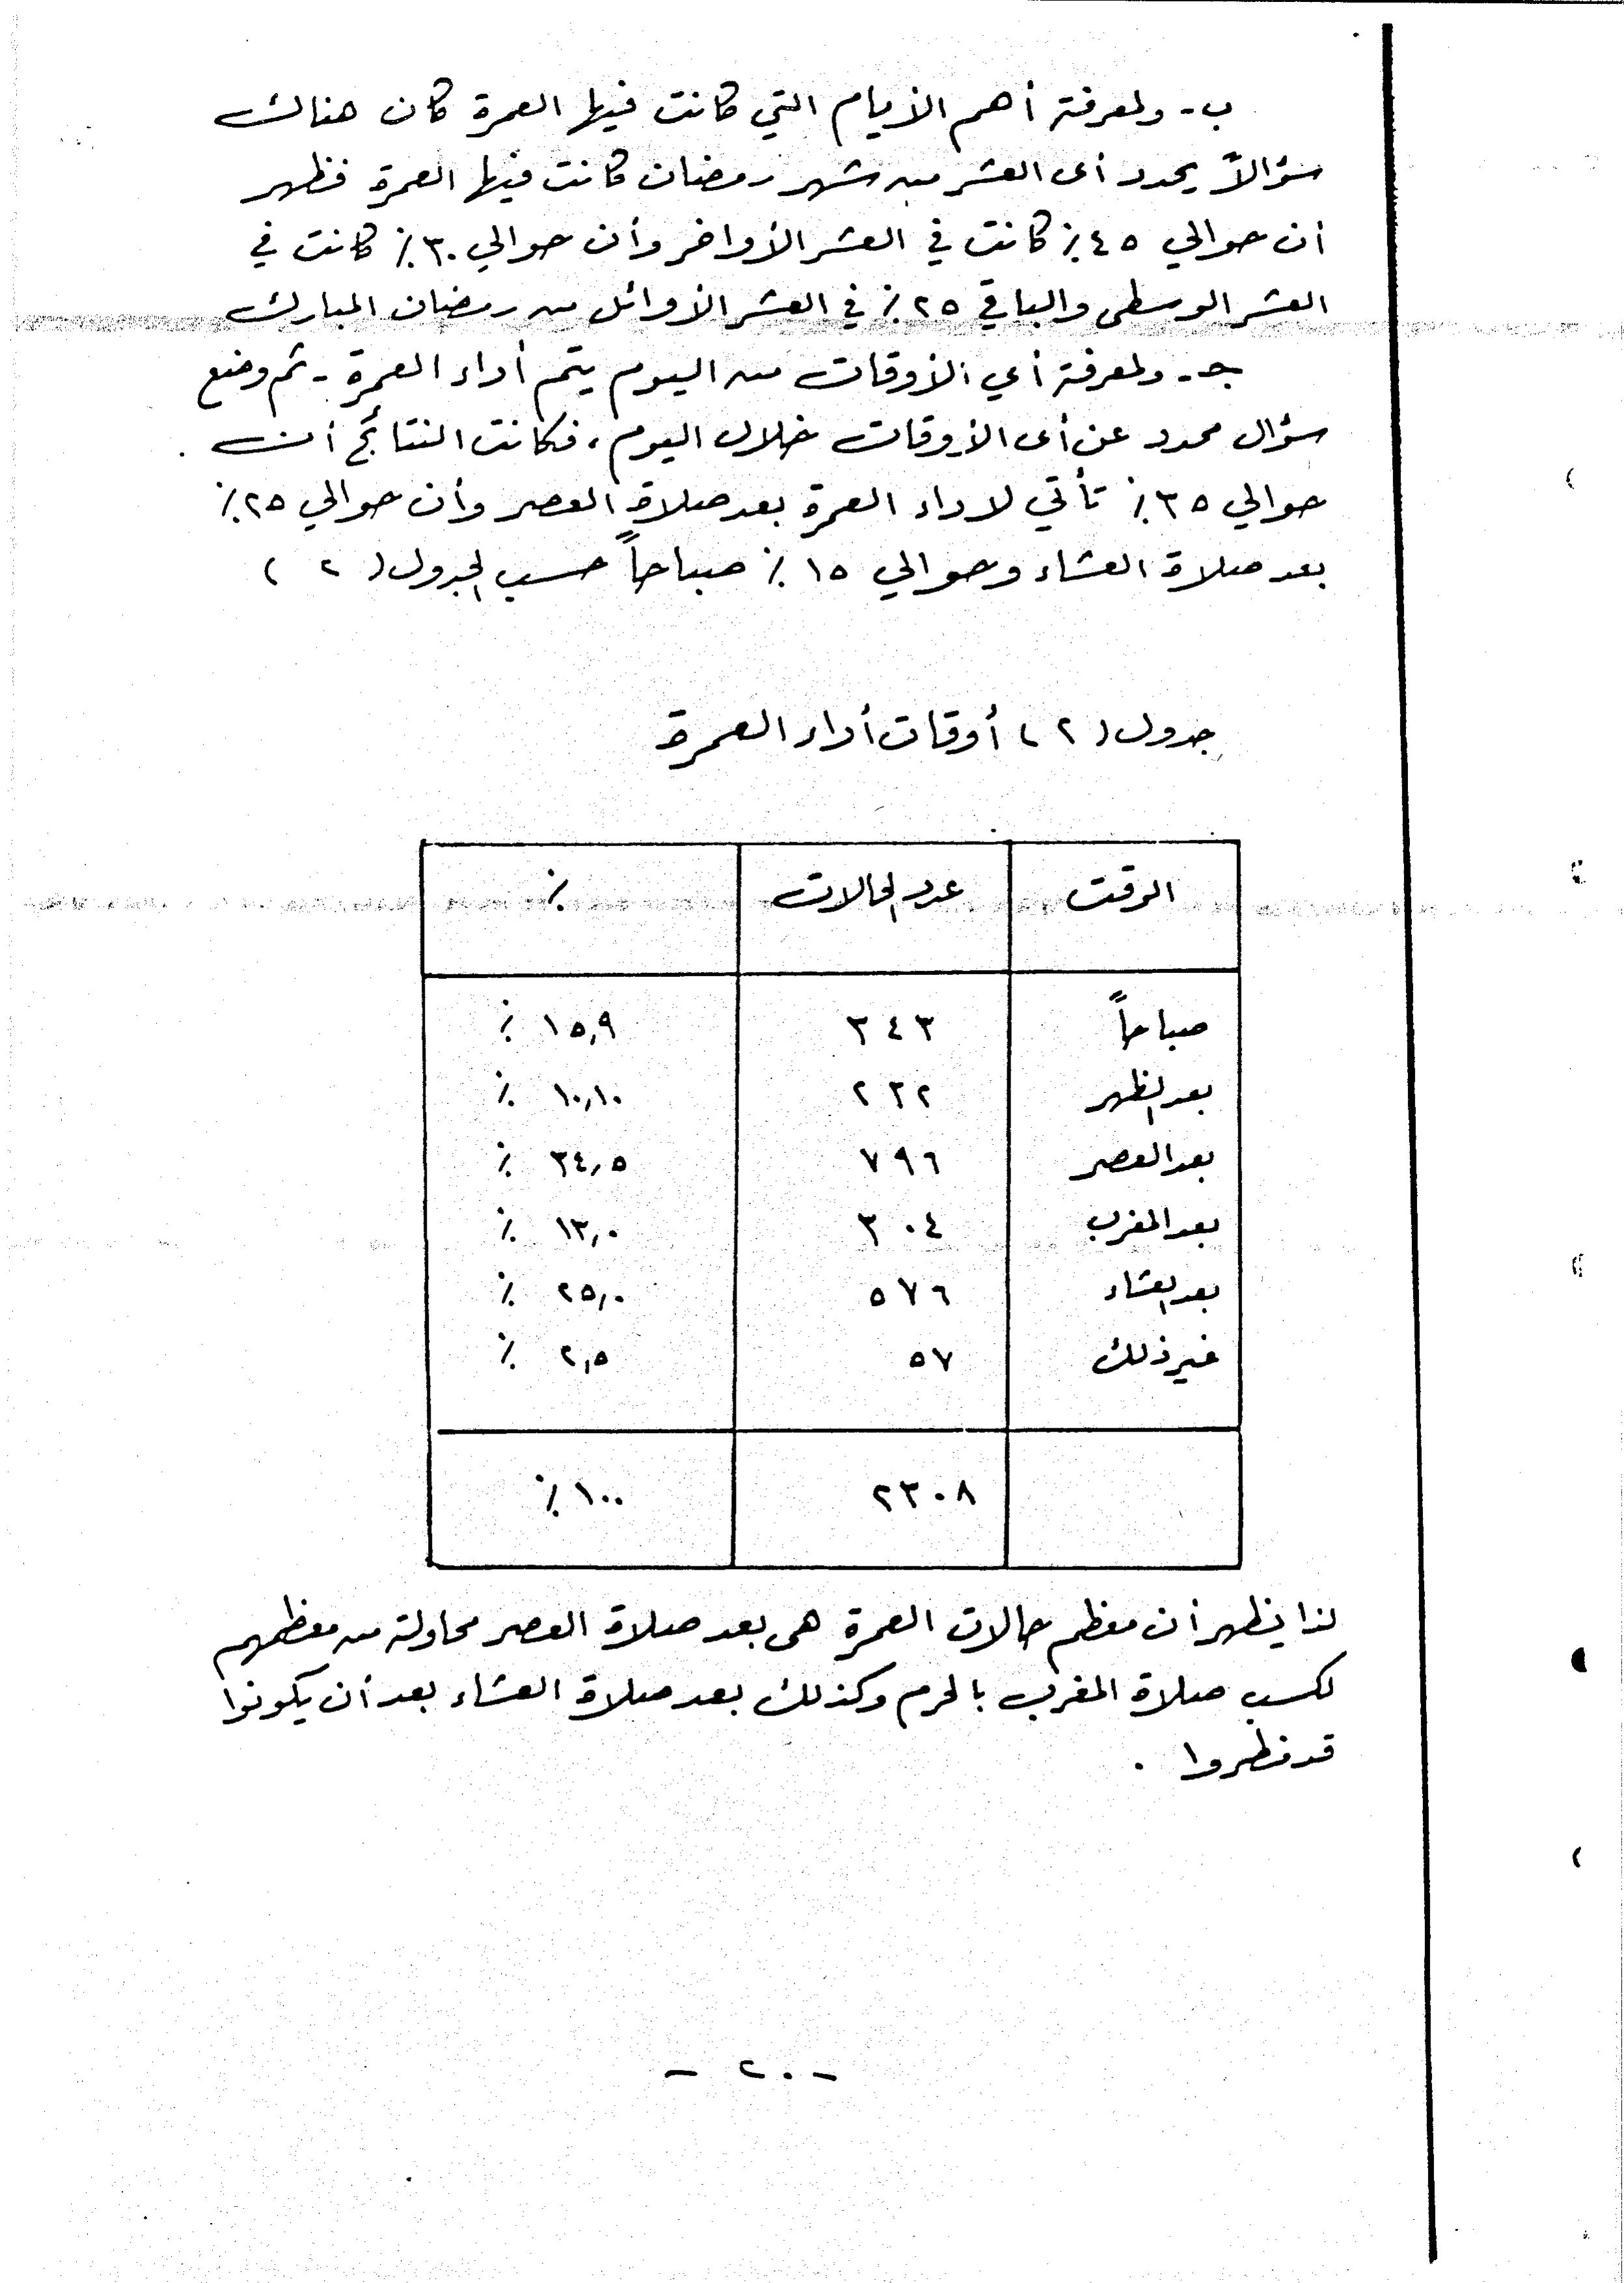 ب - ولمعرفة أهم الأيام التي كانت فيها العمرة كان هناك
سؤالاً يحدد أى العشر من شهر رمضان كانت فيها العمرة فظهر
أن حوالي ٤٥٪ كانت في العشر الأواخر وأن حوالي ٣٠٪ كانت في
العشر الوسطى والباقي ٢٥٪ في العشر الأوائل من رمضان المبارك
جـ - ولمعرفة أي الأوقات من اليوم يتم أداء العمرة - تم وضع
سؤال محدد عن أى الأوقات خلال اليوم ، فكانت النتائج أن
حوالي ٣٥٪ تأتي لاداء العمرة بعد صلاة العصر وأن حوالي ٢٥٪
بعد صلاة العشاء وحوالي ١٥٪ صباحاً حسب الجدول ( ٢ )
جدول ( ٢ ) أوقات أداء العمرة
الوقت عدد الحالات ٪
صباحاً ٣٤٣ ١٥,٩ ٪
بعد الظهر ٢٣٢ ١٠,١٠ ٪
بعد العصر ٧٩٦ ٣٤,٥ ٪
بعد المغرب ٣٠٤ ١٣,٠ ٪
بعد العشاء ٥٧٦ ٢٥,٠ ٪
غير ذلك ٥٧ ٢,٥ ٪
٢٣٠٨ ١٠٠ ٪
لذا يظهر أن معظم حالات العمرة هى بعد صلاة العصر محاولة من معظمهم
لكسب صلاة المغرب بالحرم وكذلك بعد صلاة العشاء بعد أن يكونوا
قد فطروا .
- ٢٠ -